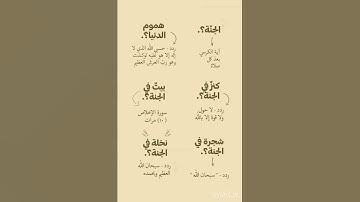 الجنّة؟.
آية الكرسي
بعد كل
صلاة
هموم
الدنيا؟.
ردد - حسبي الله الذي لا
إله إلا هو عليه توكلت
وهو ربّ العرش العظيم
كنزٌ في
الجنة؟.
ردد - لا حول
ولا قوة إلا بالله
بيتٌ في
الجنة؟.
سورة الإخلاص
(١٠) مرات
شجرة في
الجنة؟.
ردد - " سبحان الله "
نخلة في
الجنة؟.
ردد - سبحان الله
العظيم وبحمده